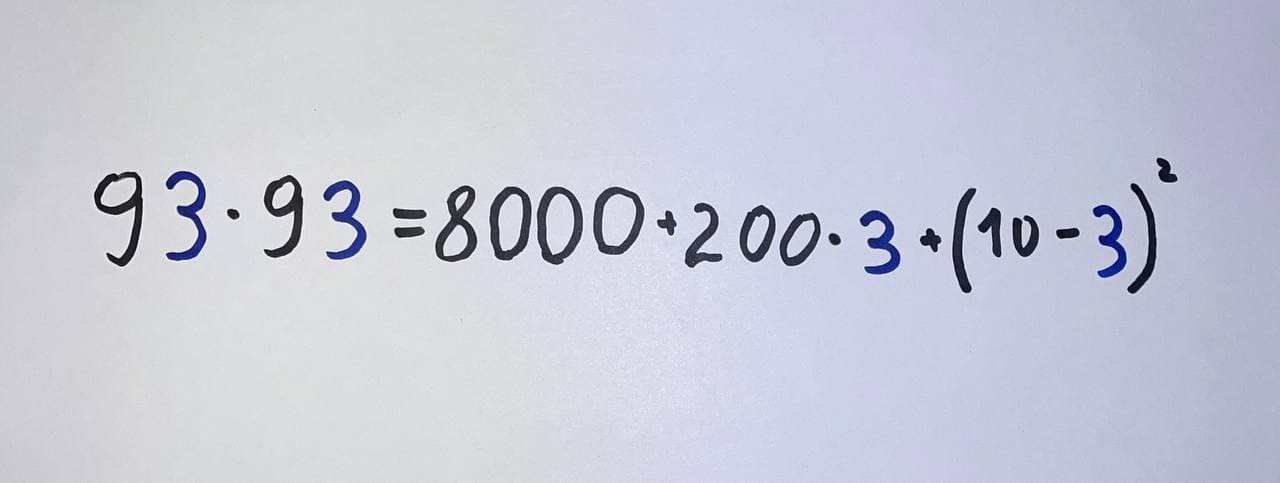 93·93=8000+200·3+(10-3)²